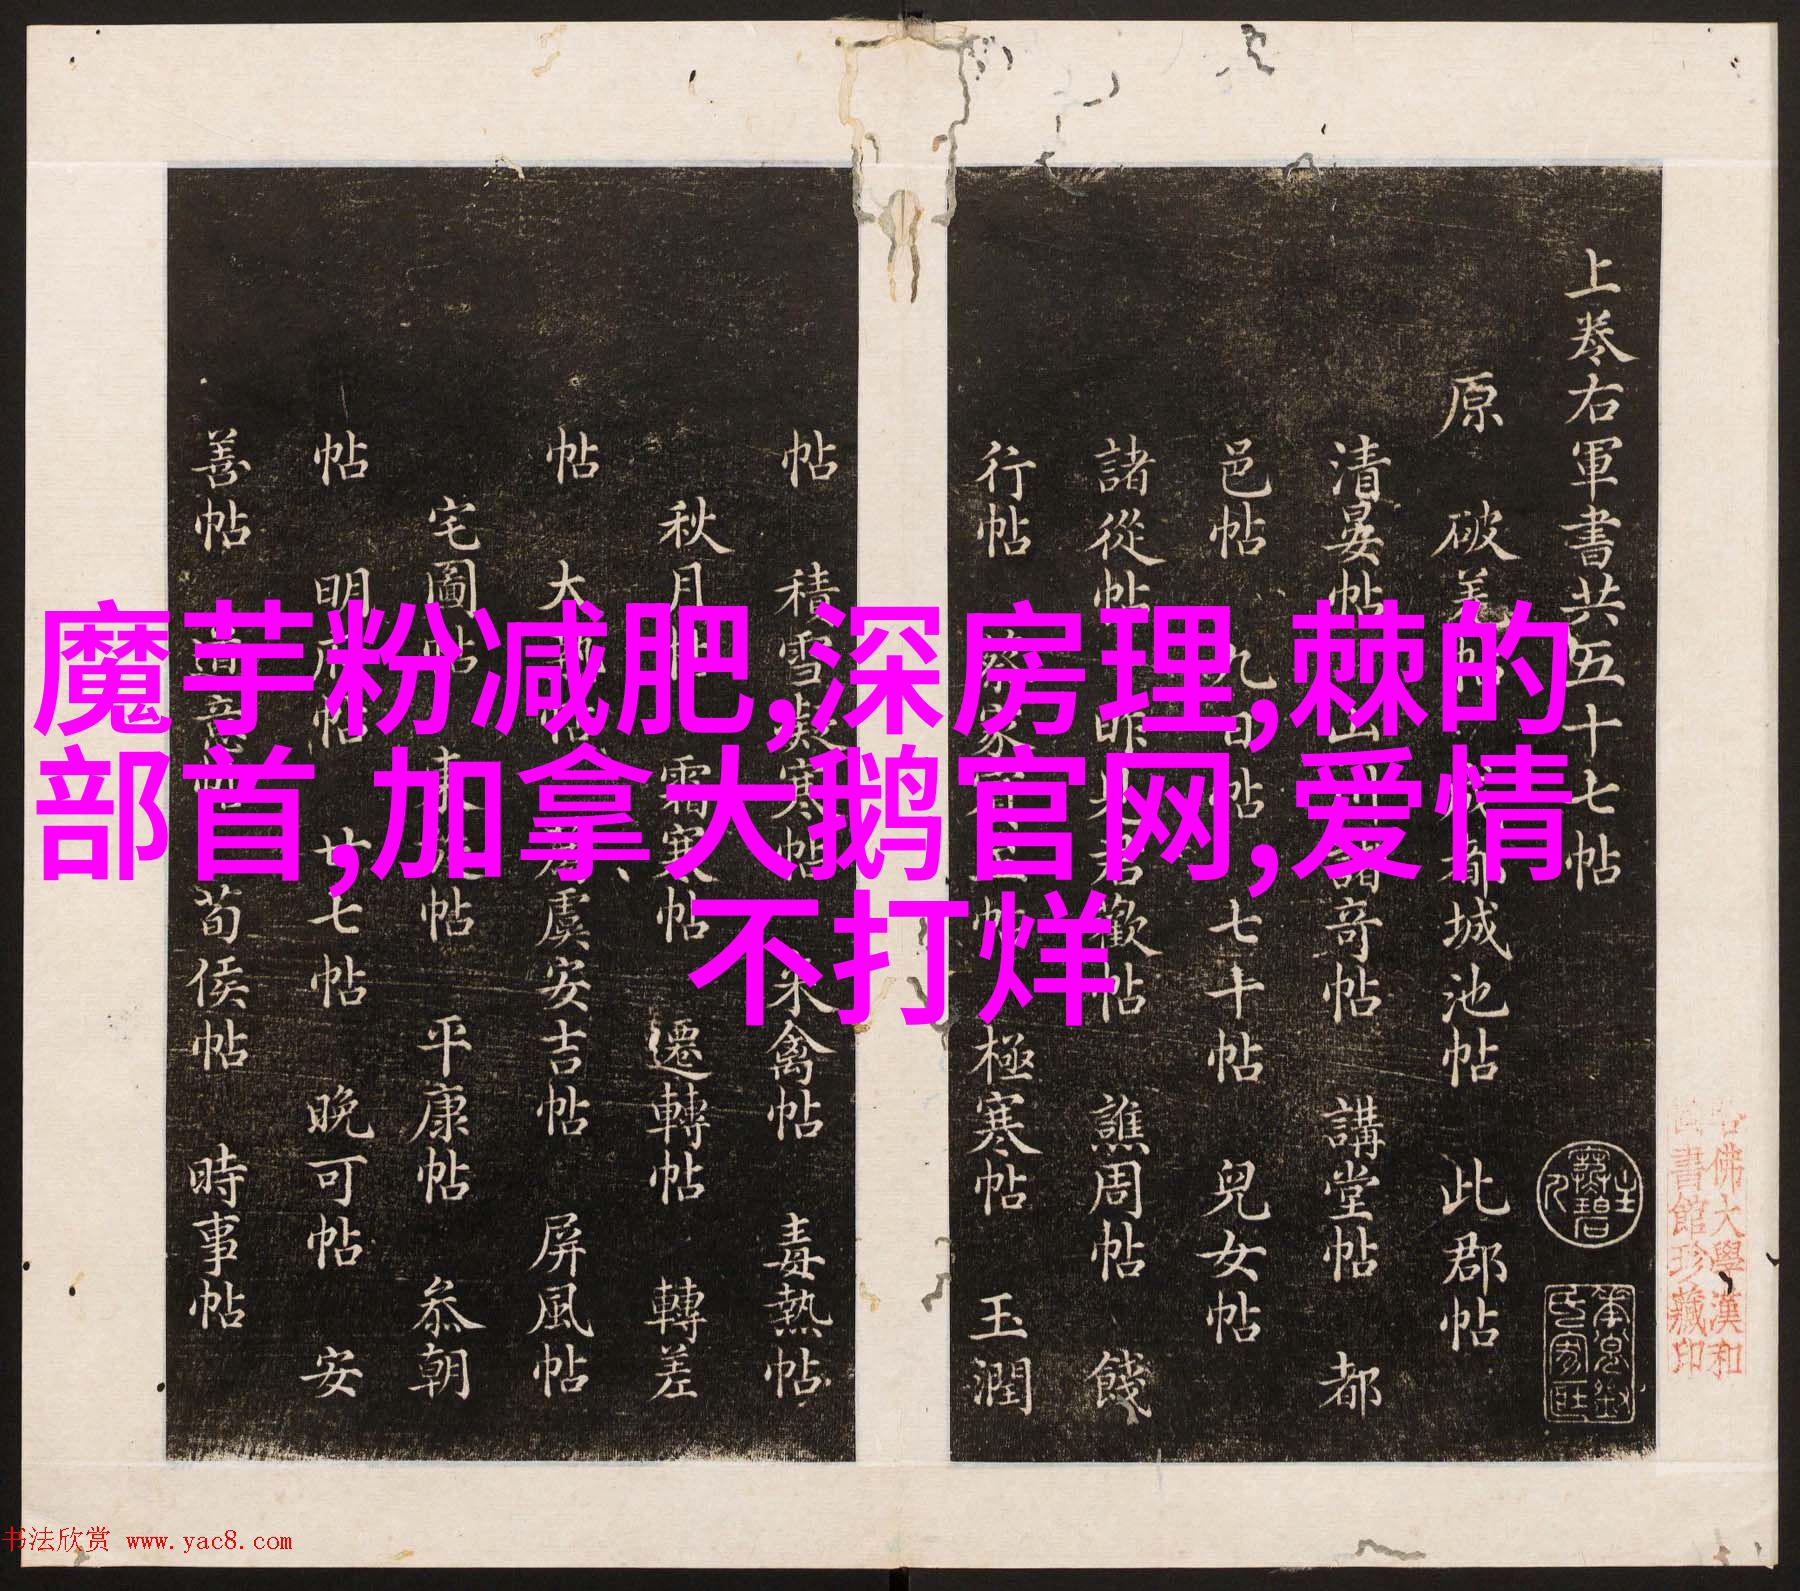 魔芋粉减肥,深房理,棘的
部首,加拿大鹅官网,爱情
不打烊
上卷右軍書共五十七帖
原 破羌帖 成都城池帖 此郡帖
清晏帖 山川諸奇帖 講堂帖 都
邑帖 九日帖 七十帖 兒女帖
諸從帖 昨見君歡帖 譙周帖 餞
行帖 極寒帖 玉潤
帖 積雪凝寒帖 來禽帖 毒熱帖
秋月帖 霜寒帖 遷轉帖 轉差
帖 大 虞安吉帖 屏風帖
宅圖帖 帖 平康帖 叅朝
帖 明府帖 廿七帖 晚可帖 安
善帖 荀侯帖 時事帖
佛大學漢和
圖書館珍藏印
书法欣赏 www.yac8.com